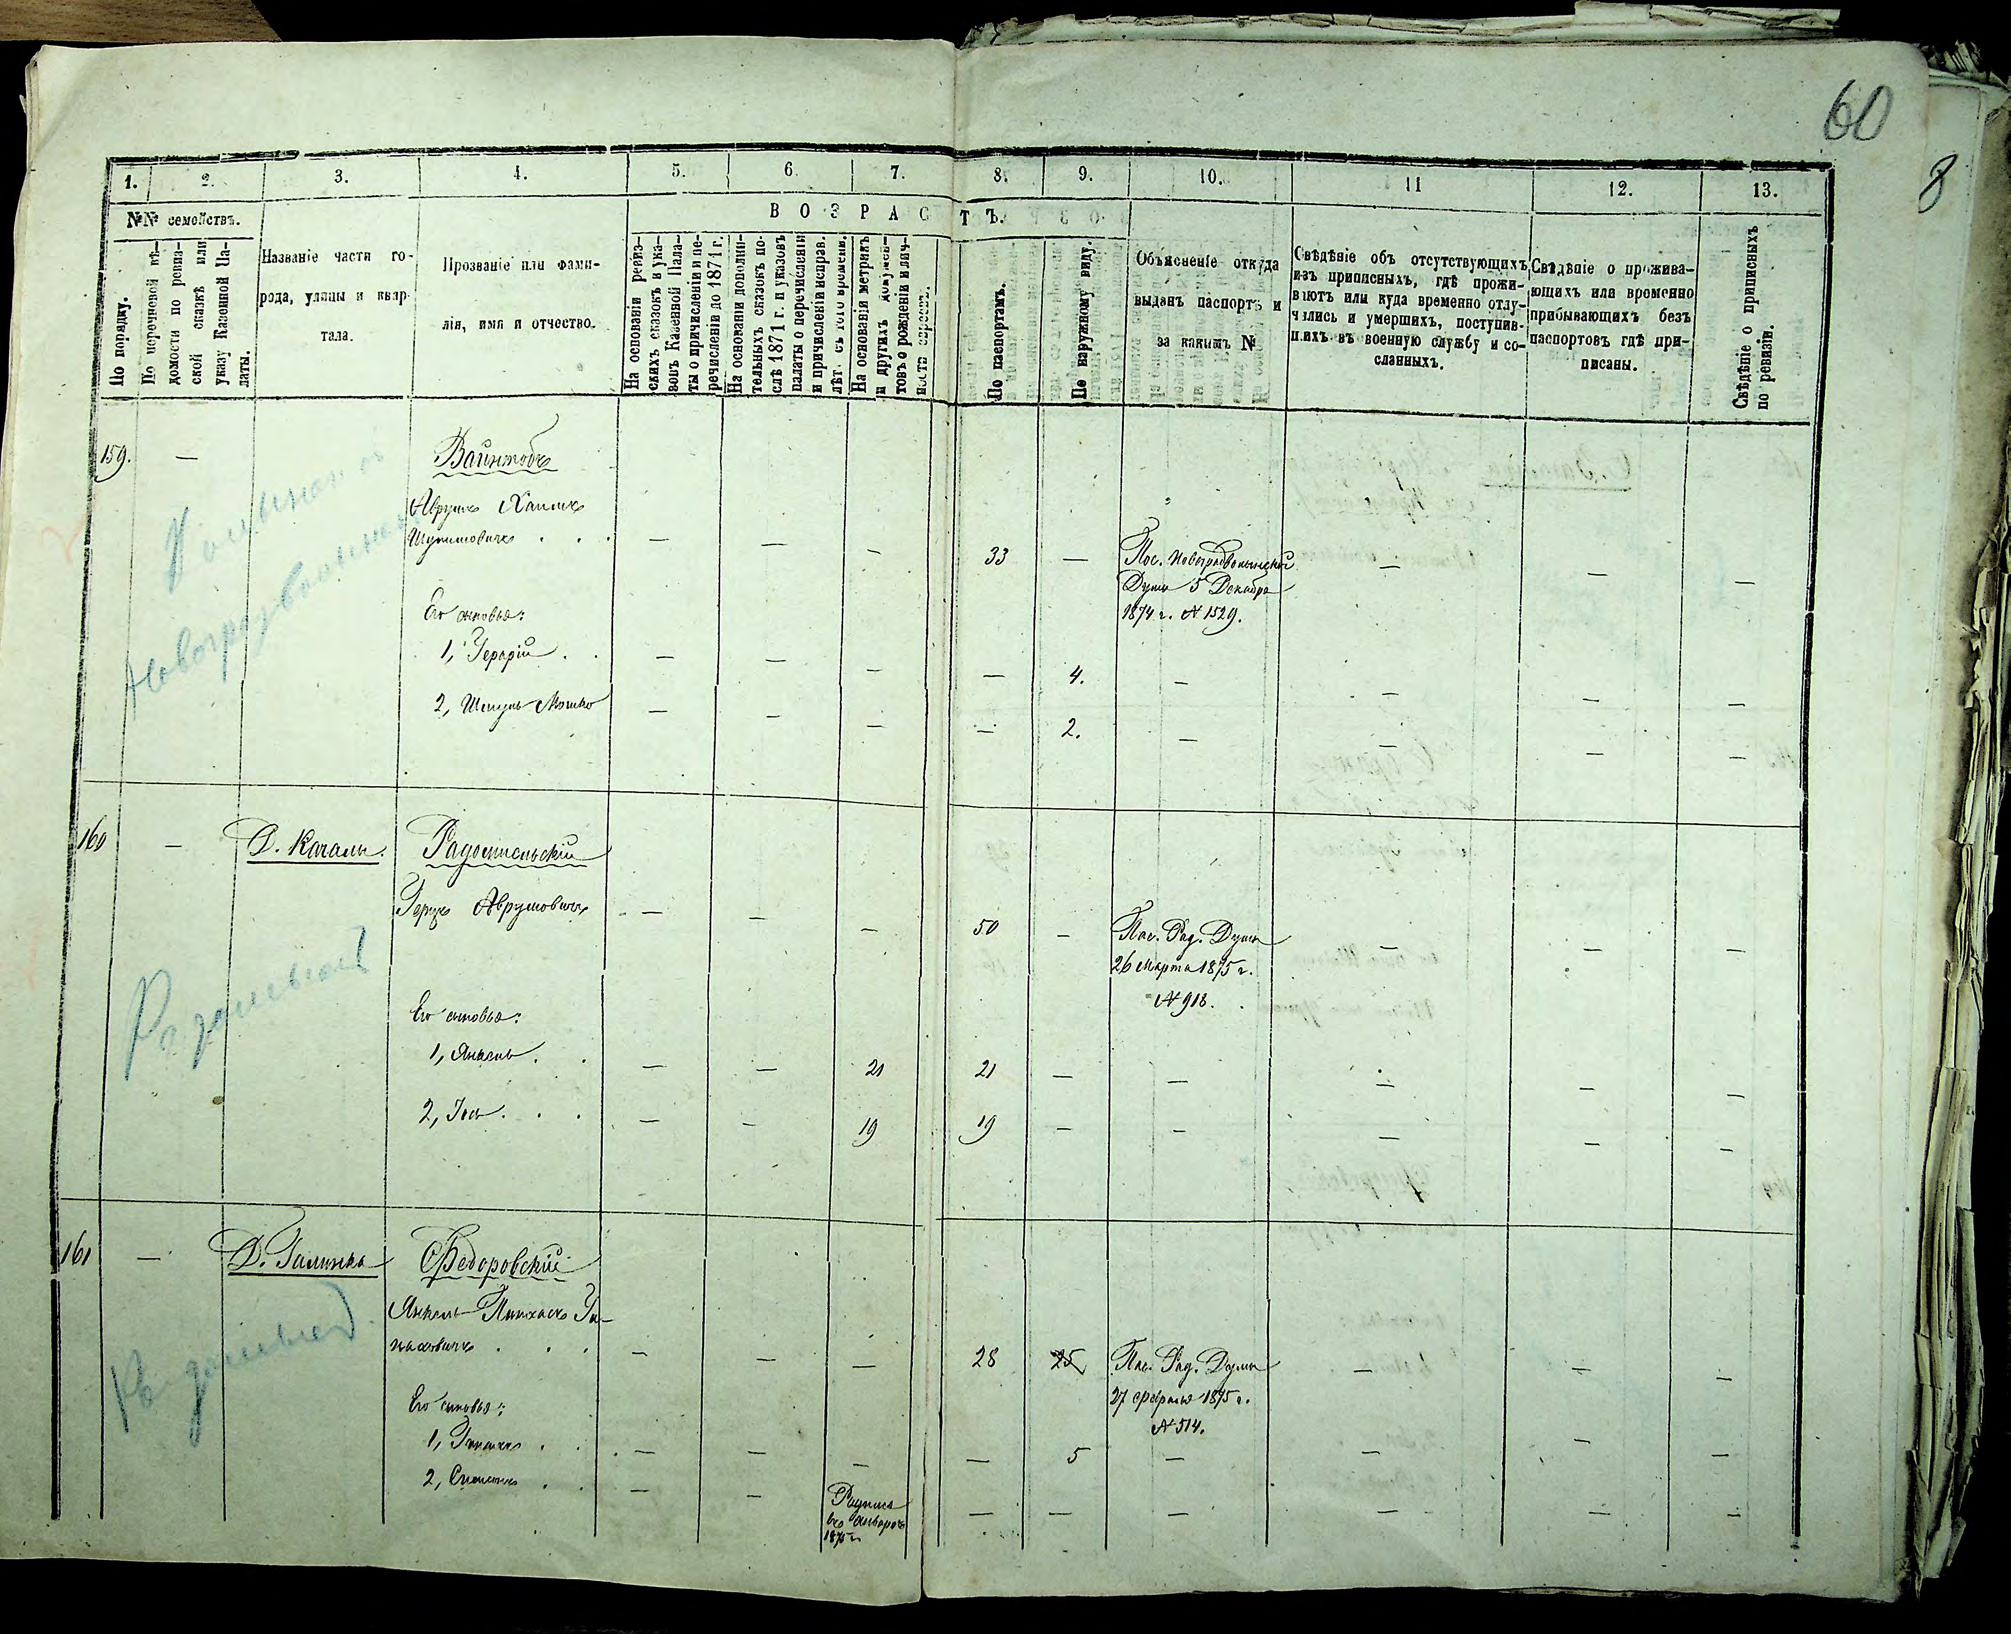 60
8
1. 2. 3. 4. 5. 6. 7. 8. 9. 10. 11 12. 13.
№№ семействъ.
ВОЗРАСТЪ.
По порядку.
По перечневой вѣ-
домости по ревиз-
ской сказкѣ или
указу Казенной Па-
латы.
Названіе части го-
рода, улицы и квар-
тала.
Прозваніе или фами-
лія, имя и отчество.
На основаніи ревиз-
скихъ сказокъ и ука-
зовъ Казенной Пала-
ты о причисленіи и пе-
речисленіи до 1871 г.
На основаніи дополни-
тельныхъ сказокъ по-
слѣ 1871 г. и указовъ
палаты о перечисленіи
и причисленіи исправ.
лѣт. съ того времени.
На основаніи метрикъ
и другихъ докумен-
товъ о рожденіи и лич-
ности
По паспортамъ.
По наружному виду.
Объясненіе откуда
выданъ паспортъ и
за какимъ №
Свѣдѣніе объ отсутствующихъ
изъ приписныхъ, гдѣ прожи-
ваютъ или куда временно отлу-
чились и умершихъ, поступив-
шихъ въ военную службу и со-
сланныхъ.
Свѣдѣніе о прожива-
ющихъ или временно
прибывающихъ безъ
паспортовъ гдѣ при-
писаны.
Свѣдѣніе о приписныхъ
по ревизіи.
159. —
Вайнтобъ
Аврумъ
— — — 33 — Пас. Новоградволынской — — —
Думы 5 Декабря
1874 г. № 1529.
Его сыновья:
1, — — — — 4. — — — —
2, Шмуль Мошко — — — — 2. — — — —
160 — Д. Кагалы.
Радомысльскій
Герцъ Аврумовичъ — — — 50 — Пас. Рад. Думы — — —
26 Марта 1875 г.
№ 918.
Его сыновья:
1, Янкель — — 21 21 — — — — —
2, Іось — — 19 19 — — — — —
161 — Д. Галинка
Федоровскій
Янкель Пинхасъ
— — — 28 25 Пас. Рад. Думы — — —
27 февраля 1875 г.
№ 514.
Его сыновья:
1, — — — — 5 — — — —
2, — — Родился — — — — — —
въ Январѣ
1875 г.